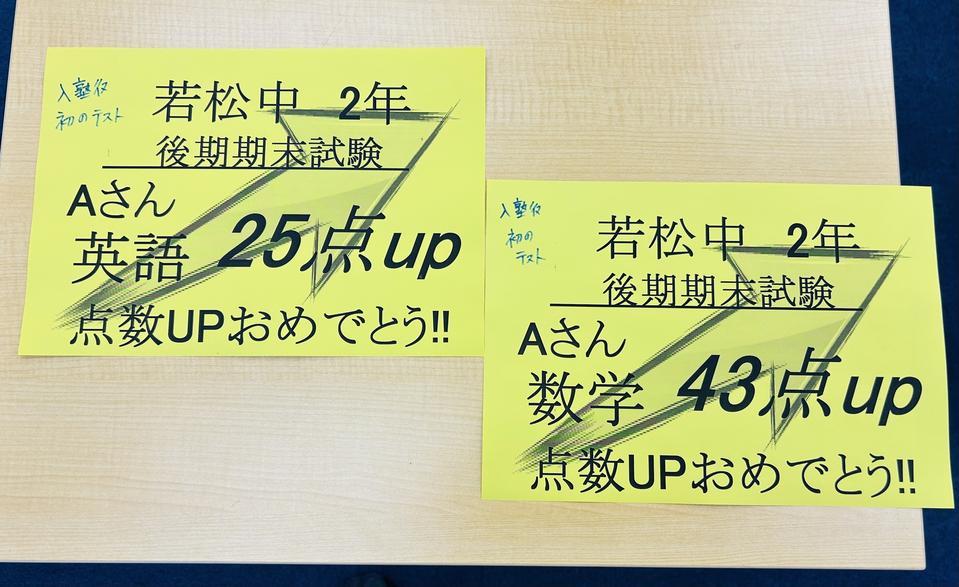 入塾後
初のテスト
若松中 2年
後期期末試験
Aさん
英語 25点up
点数UPおめでとう!!
入塾後
初の
テスト
若松中 2年
後期期末試験
Aさん
数学 43点up
点数UPおめでとう!!